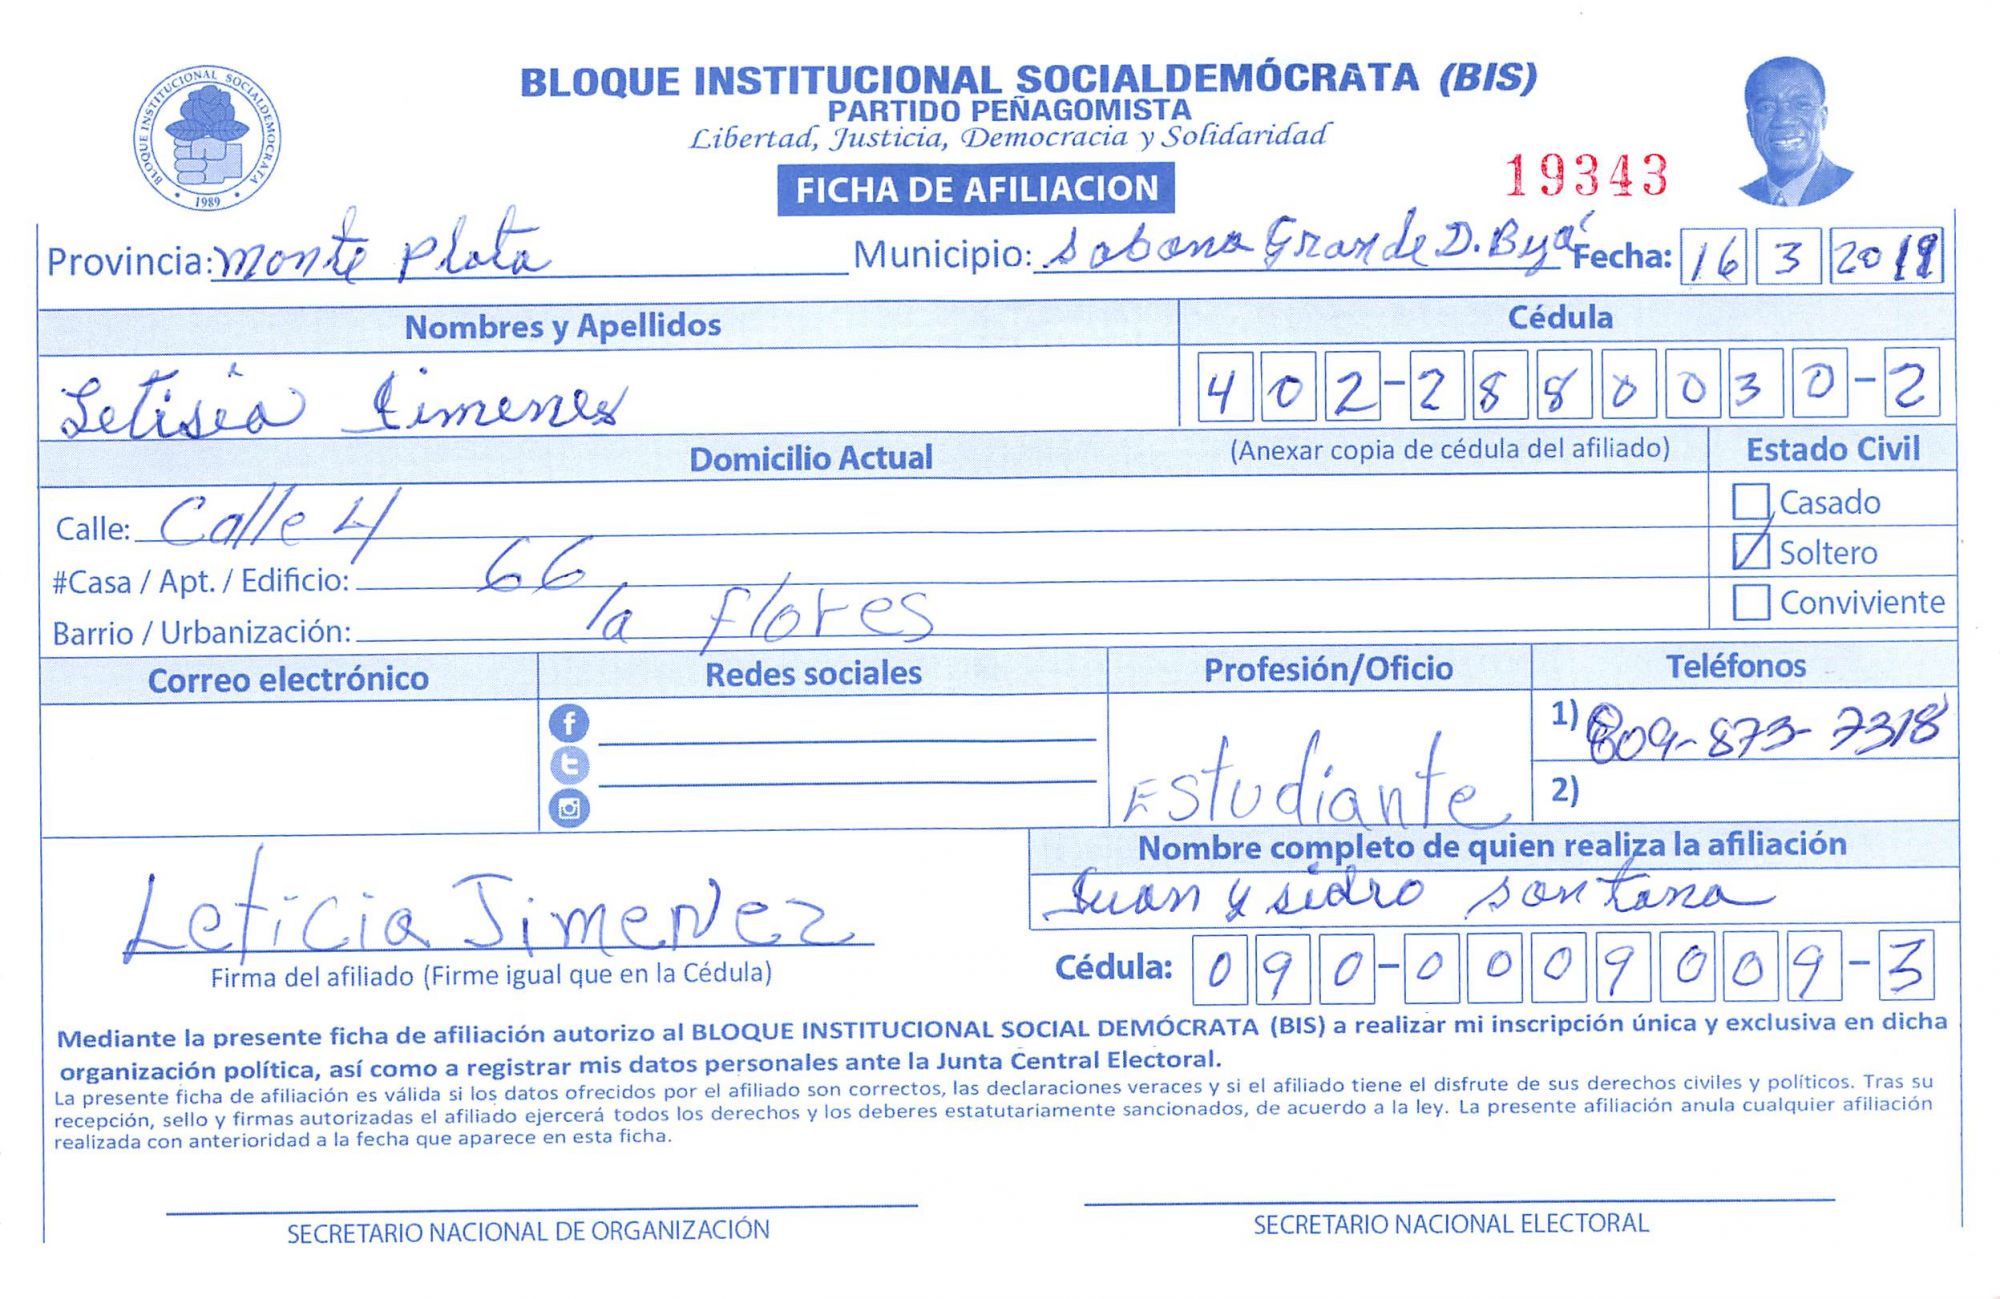 BLOQUE INSTITUCIONAL SOCIALDEMÓCRATA (BIS)
PARTIDO PEÑAGOMISTA
Libertad, Justicia, Democracia y Solidaridad
BLOQUE INSTITUCIONAL SOCIALDEMOCRATA
1989
FICHA DE AFILIACION
19343
Provincia: Monte Plata Municipio: Sabana Grande D. Byá Fecha: 16 3 2019
Nombres y Apellidos Cédula
Letisia Jimenes 402-2880030-2
Domicilio Actual (Anexar copia de cédula del afiliado) Estado Civil
Calle: Calle 4 Casado
#Casa / Apt. / Edificio: 66 Soltero
Barrio / Urbanización: la flores Conviviente
Correo electrónico Redes sociales Profesión/Oficio Teléfonos
1) 809-873-7318
Estudiante 2)
Nombre completo de quien realiza la afiliación
Juan Ysidro Santana
Leticia Jimenez
Firma del afiliado (Firme igual que en la Cédula) Cédula: 090-0009009-3
Mediante la presente ficha de afiliación autorizo al BLOQUE INSTITUCIONAL SOCIAL DEMÓCRATA (BIS) a realizar mi inscripción única y exclusiva en dicha
organización política, así como a registrar mis datos personales ante la Junta Central Electoral.
La presente ficha de afiliación es válida si los datos ofrecidos por el afiliado son correctos, las declaraciones veraces y si el afiliado tiene el disfrute de sus derechos civiles y políticos. Tras su
recepción, sello y firmas autorizadas el afiliado ejercerá todos los derechos y los deberes estatutariamente sancionados, de acuerdo a la ley. La presente afiliación anula cualquier afiliación
realizada con anterioridad a la fecha que aparece en esta ficha.
SECRETARIO NACIONAL DE ORGANIZACIÓN SECRETARIO NACIONAL ELECTORAL